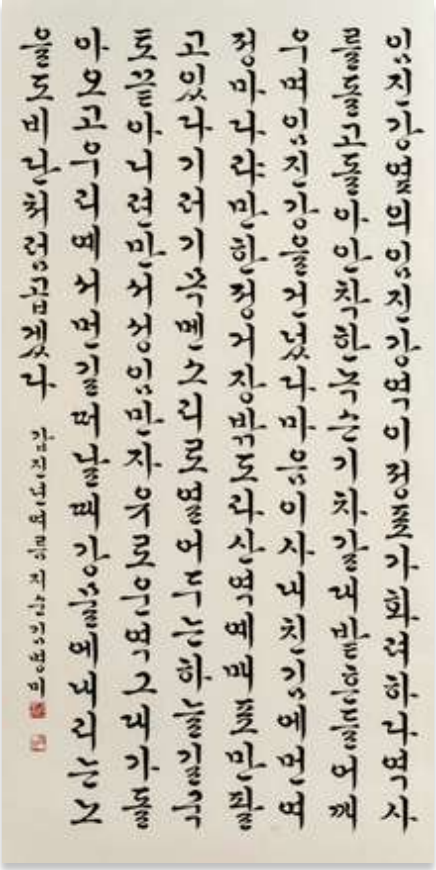 임진강옆의임진강역이정표가화려하다역사
를돌고돌아안착한녹슨기차갈대밭흔들어깨
우며임진강을건넜다마음이사내친김에먼여
정마다랴만한정거장밖도라산역에매표만팔
고있다기러기목멘소리로열어두는하늘길국
토끝아니련만서성임만자유로운역그대가돌
아오고우리예서먼길떠날때강물에내리는노
을도비단처럼곱겠다
갑진년여름지순김명미